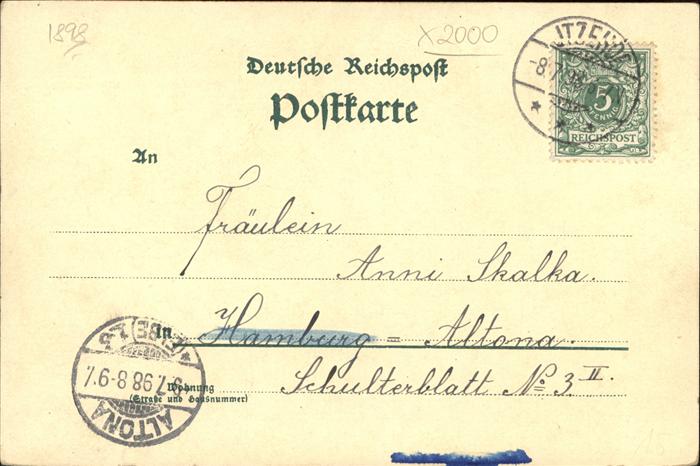 1898
X2000
Deutsche Reichspost
Postkarte
ITZEHOE
8.7.98
5
PFENNIG
REICHSPOST
An
Fräulein
Anni Skalka.
In Hamburg = Altona.
Wohnung
(Straße und Hausnummer)
Schulterblatt No 3 II.
ALTONA
(ELBE)
98 8-9 V.
15